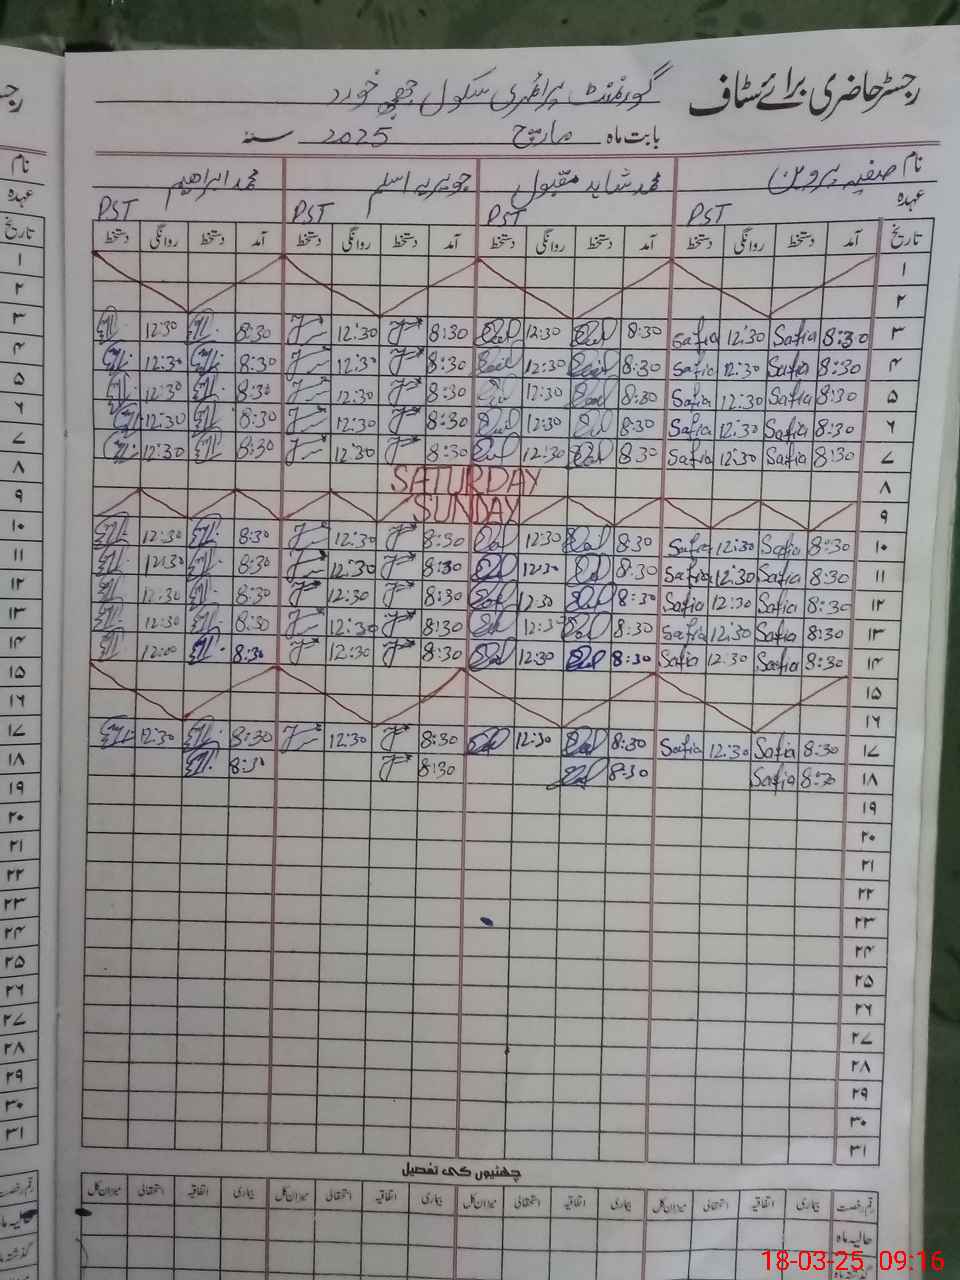 رجسٹر حاضری برائے سٹاف
گورنمنٹ پرائمری سکول خورد
بابت ماہ مارچ 2025 سنہ
نام صفیہ پروین محمد شاہد مقبول جویریہ اسلم محمد ابراہیم
عہدہ PST PST PST PST
تاریخ آمد دستخط روانگی دستخط آمد دستخط روانگی دستخط آمد دستخط روانگی دستخط آمد دستخط روانگی دستخط
۱
۲
۳ 8:30 Safia 12:30 Safia 8:30 12:30 8:30 12:30 8:30 12:30
۴ 8:30 Safia 12:30 Safia 8:30 12:30 8:30 12:30 8:30 12:30
۵ 8:30 Safia 12:30 Safia 8:30 12:30 8:30 12:30 8:30 12:30
۶ 8:30 Safia 12:30 Safia 8:30 12:30 8:30 12:30 8:30 12:30
۷ 8:30 Safia 12:30 Safia 8:30 12:30 8:30 12:30 8:30 12:30
۸ SATURDAY
۹ SUNDAY
۱۰ 8:30 Safia 12:30 Safia 8:30 12:30 8:30 12:30 8:30 12:30
۱۱ 8:30 Safia 12:30 Safia 8:30 12:30 8:30 12:30 8:30 12:30
۱۲ 8:30 Safia 12:30 Safia 8:30 12:30 8:30 12:30 8:30 12:30
۱۳ 8:30 Safia 12:30 Safia 8:30 12:30 8:30 12:30 8:30 12:30
۱۴ 8:30 Safia 12:30 Safia 8:30 12:30 8:30 12:30 8:30 12:00
۱۵
۱۶
۱۷ 8:30 Safia 12:30 Safia 8:30 12:30 8:30 12:30 8:30 12:30
۱۸ 8:30 Safia 8:30 8:30 8:30
۱۹
۲۰
۲۱
۲۲
۲۳
۲۴
۲۵
۲۶
۲۷
۲۸
۲۹
۳۰
۳۱
چھٹیوں کی تفصیل
رقم رخصت بیماری اتفاقیہ استحقاقی میزان کل بیماری اتفاقیہ استحقاقی میزان کل بیماری اتفاقیہ استحقاقی میزان کل بیماری اتفاقیہ استحقاقی میزان کل
حالیہ ماہ
گذشتہ ماہ
18-03-25 09:16